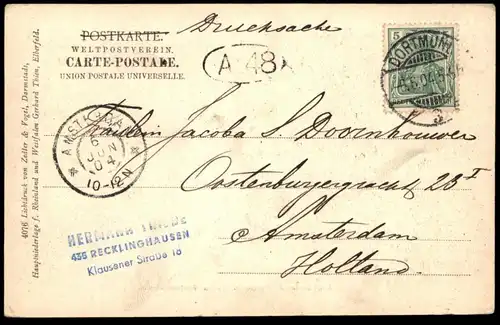 Drucksache
POSTKARTE.
WELTPOSTVEREIN.
CARTE-POSTALE.
UNION POSTALE UNIVERSELLE.
A 48
5
DORTMUND
AMSTERDAM
6 JUN 04
10-12 N
Fräulein Jacoba S. Doornhouwer
Oostenburgergracht 28 I
Amsterdam
Holland.
HERMANN
435 RECKLINGHAUSEN
Klausener Straße 18
4016 Lichtdruck von Zedler & Vogel, Darmstadt,
Hauptniederlage f. Rheinland und Westfalen Gerhard Thien, Elberfeld.